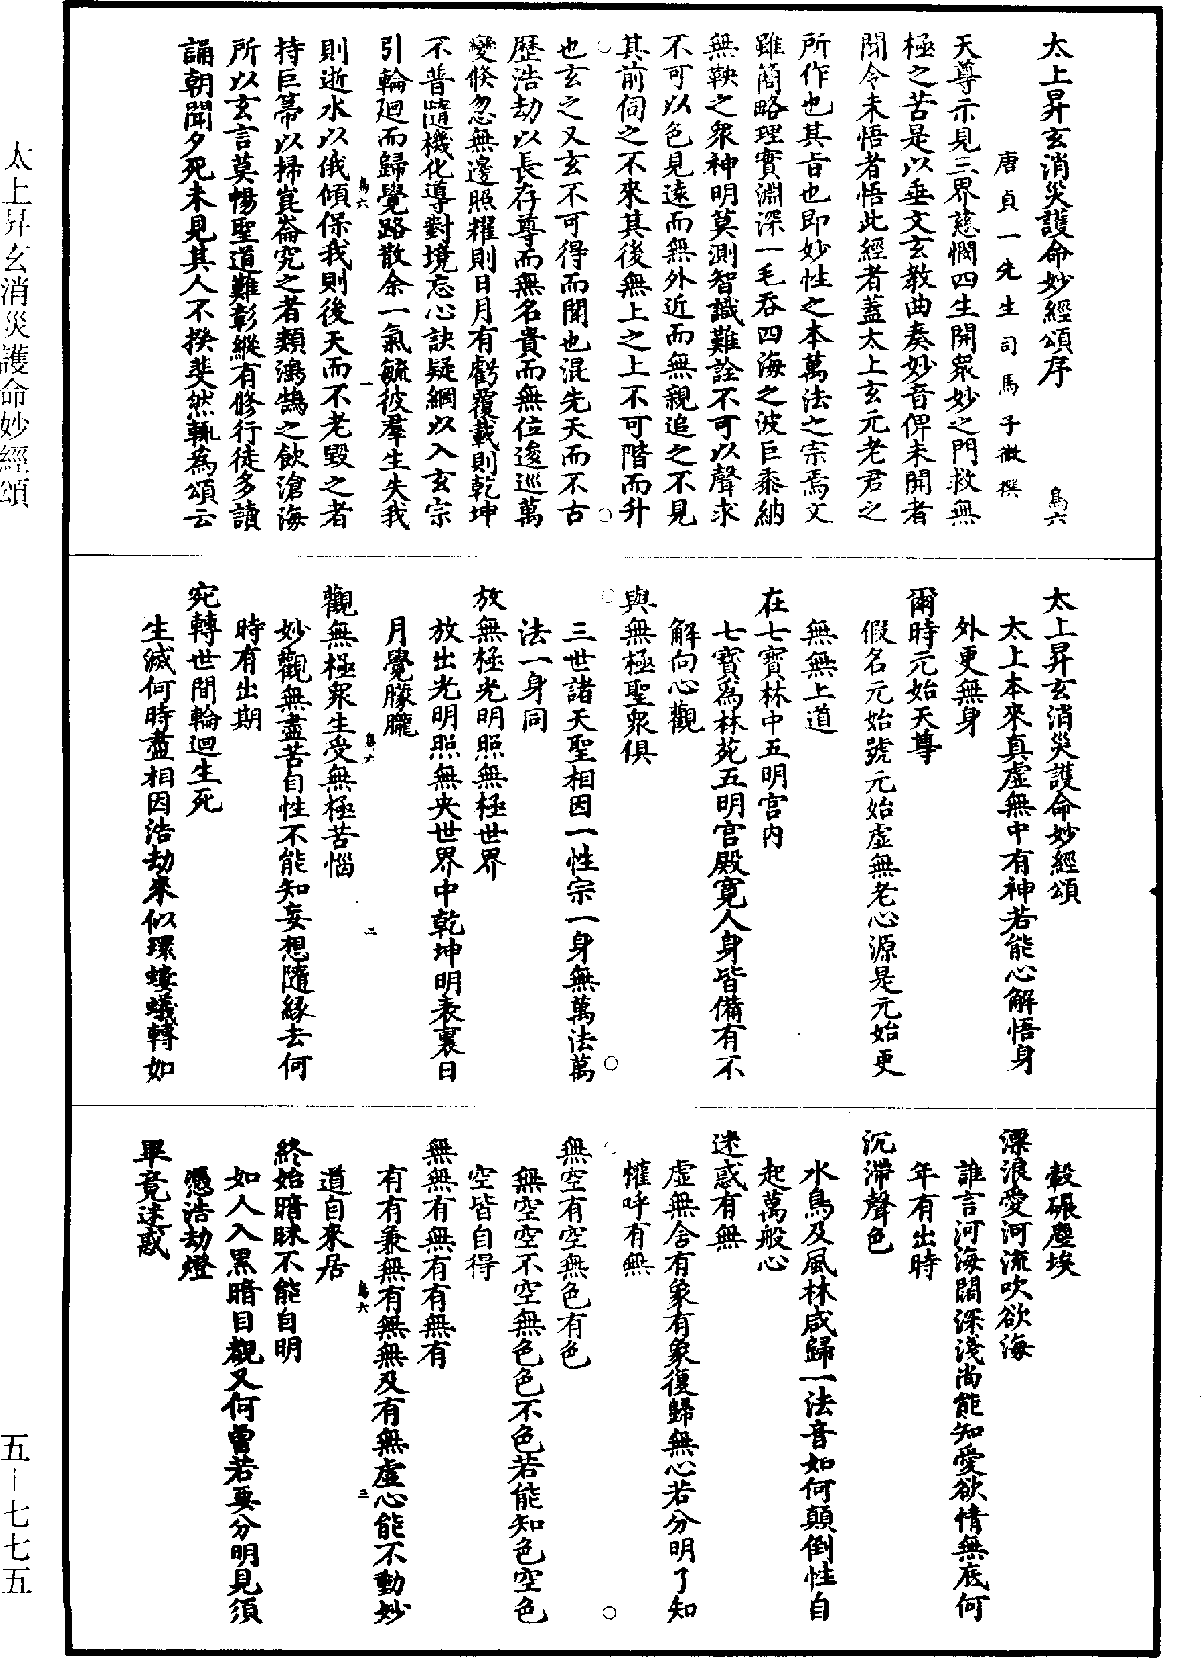 太上昇玄消災護命妙經頌序
鳥六
唐貞一先生司馬子微撰
天尊示見三界慈憫四生開衆妙之門救無
極之苦是以垂文玄教曲奏妙音俾未開者
聞令未悟者悟此經者蓋太上玄元老君之
所作也其旨也即妙性之本萬法之宗焉文
雖簡略理實淵深一毛吞四海之波巨黍納
無鞅之衆神明莫測智識難詮不可以聲求
不可以色見遠而無外近而無親追之不見
其前伺之不來其後無上之上不可階而升
也玄之又玄不可得而聞也混先天而不古
歷浩劫以長存尊而無名貴而無位逡巡萬
變倐忽無邊照耀則日月有虧覆載則乾坤
不普隨機化導對境忘心訣疑網以入玄宗
引輪迴而歸覺路散余一氣毓彼羣生失我
則逝水以俄傾保我則後天而不老毀之者
持巨箒以掃崑崙究之者類鴻鵠之飲滄海
所以玄言莫暢聖道難彰縱有修行徒多讀
誦朝聞夕死未見其人不揆斐然輒為頌云
鳥六
一
太上昇玄消災護命妙經頌
太上本來真虛無中有神若能心解悟身
外更無身
爾時元始天尊
假名元始號元始虛無老心源是元始更
無無上道
在七寶林中五明宮內
七寶為林苑五明宮殿寬人身皆備有不
解向心觀
與無極聖衆俱
三世諸天聖相因一性宗一身無萬法萬
法一身同
放無極光明照無極世界
放出光明照無央世界中乾坤明表裏日
月覺朦朧
鳥六
二
觀無極衆生受無極苦惱
妙觀無盡苦自性不能知妄想隨緣去何
時有出期
宛轉世間輪迴生死
生滅何時盡相因浩劫來似環螻蟻轉如
轂碾塵埃
漂浪愛河流吹欲海
誰言河海闊深淺尚能知愛欲情無底何
年有出時
沉滯聲色
水鳥及風林咸歸一法音如何顛倒性自
起萬般心
迷惑有無
虛無含有象有象復歸無心若分明了知
懽呼有無
無空有空無色有色
無空空不空無色色不色若能知色空色
空皆自得
無無有無有有無有
有有兼無有無無及有無虛心能不動妙
道自來居
鳥六
三
終始暗昧不能自明
如人入黑暗目覩又何曾若要分明見須
憑浩劫燈
畢竟迷惑
太上昇玄消災護命妙經頌
五—七七五